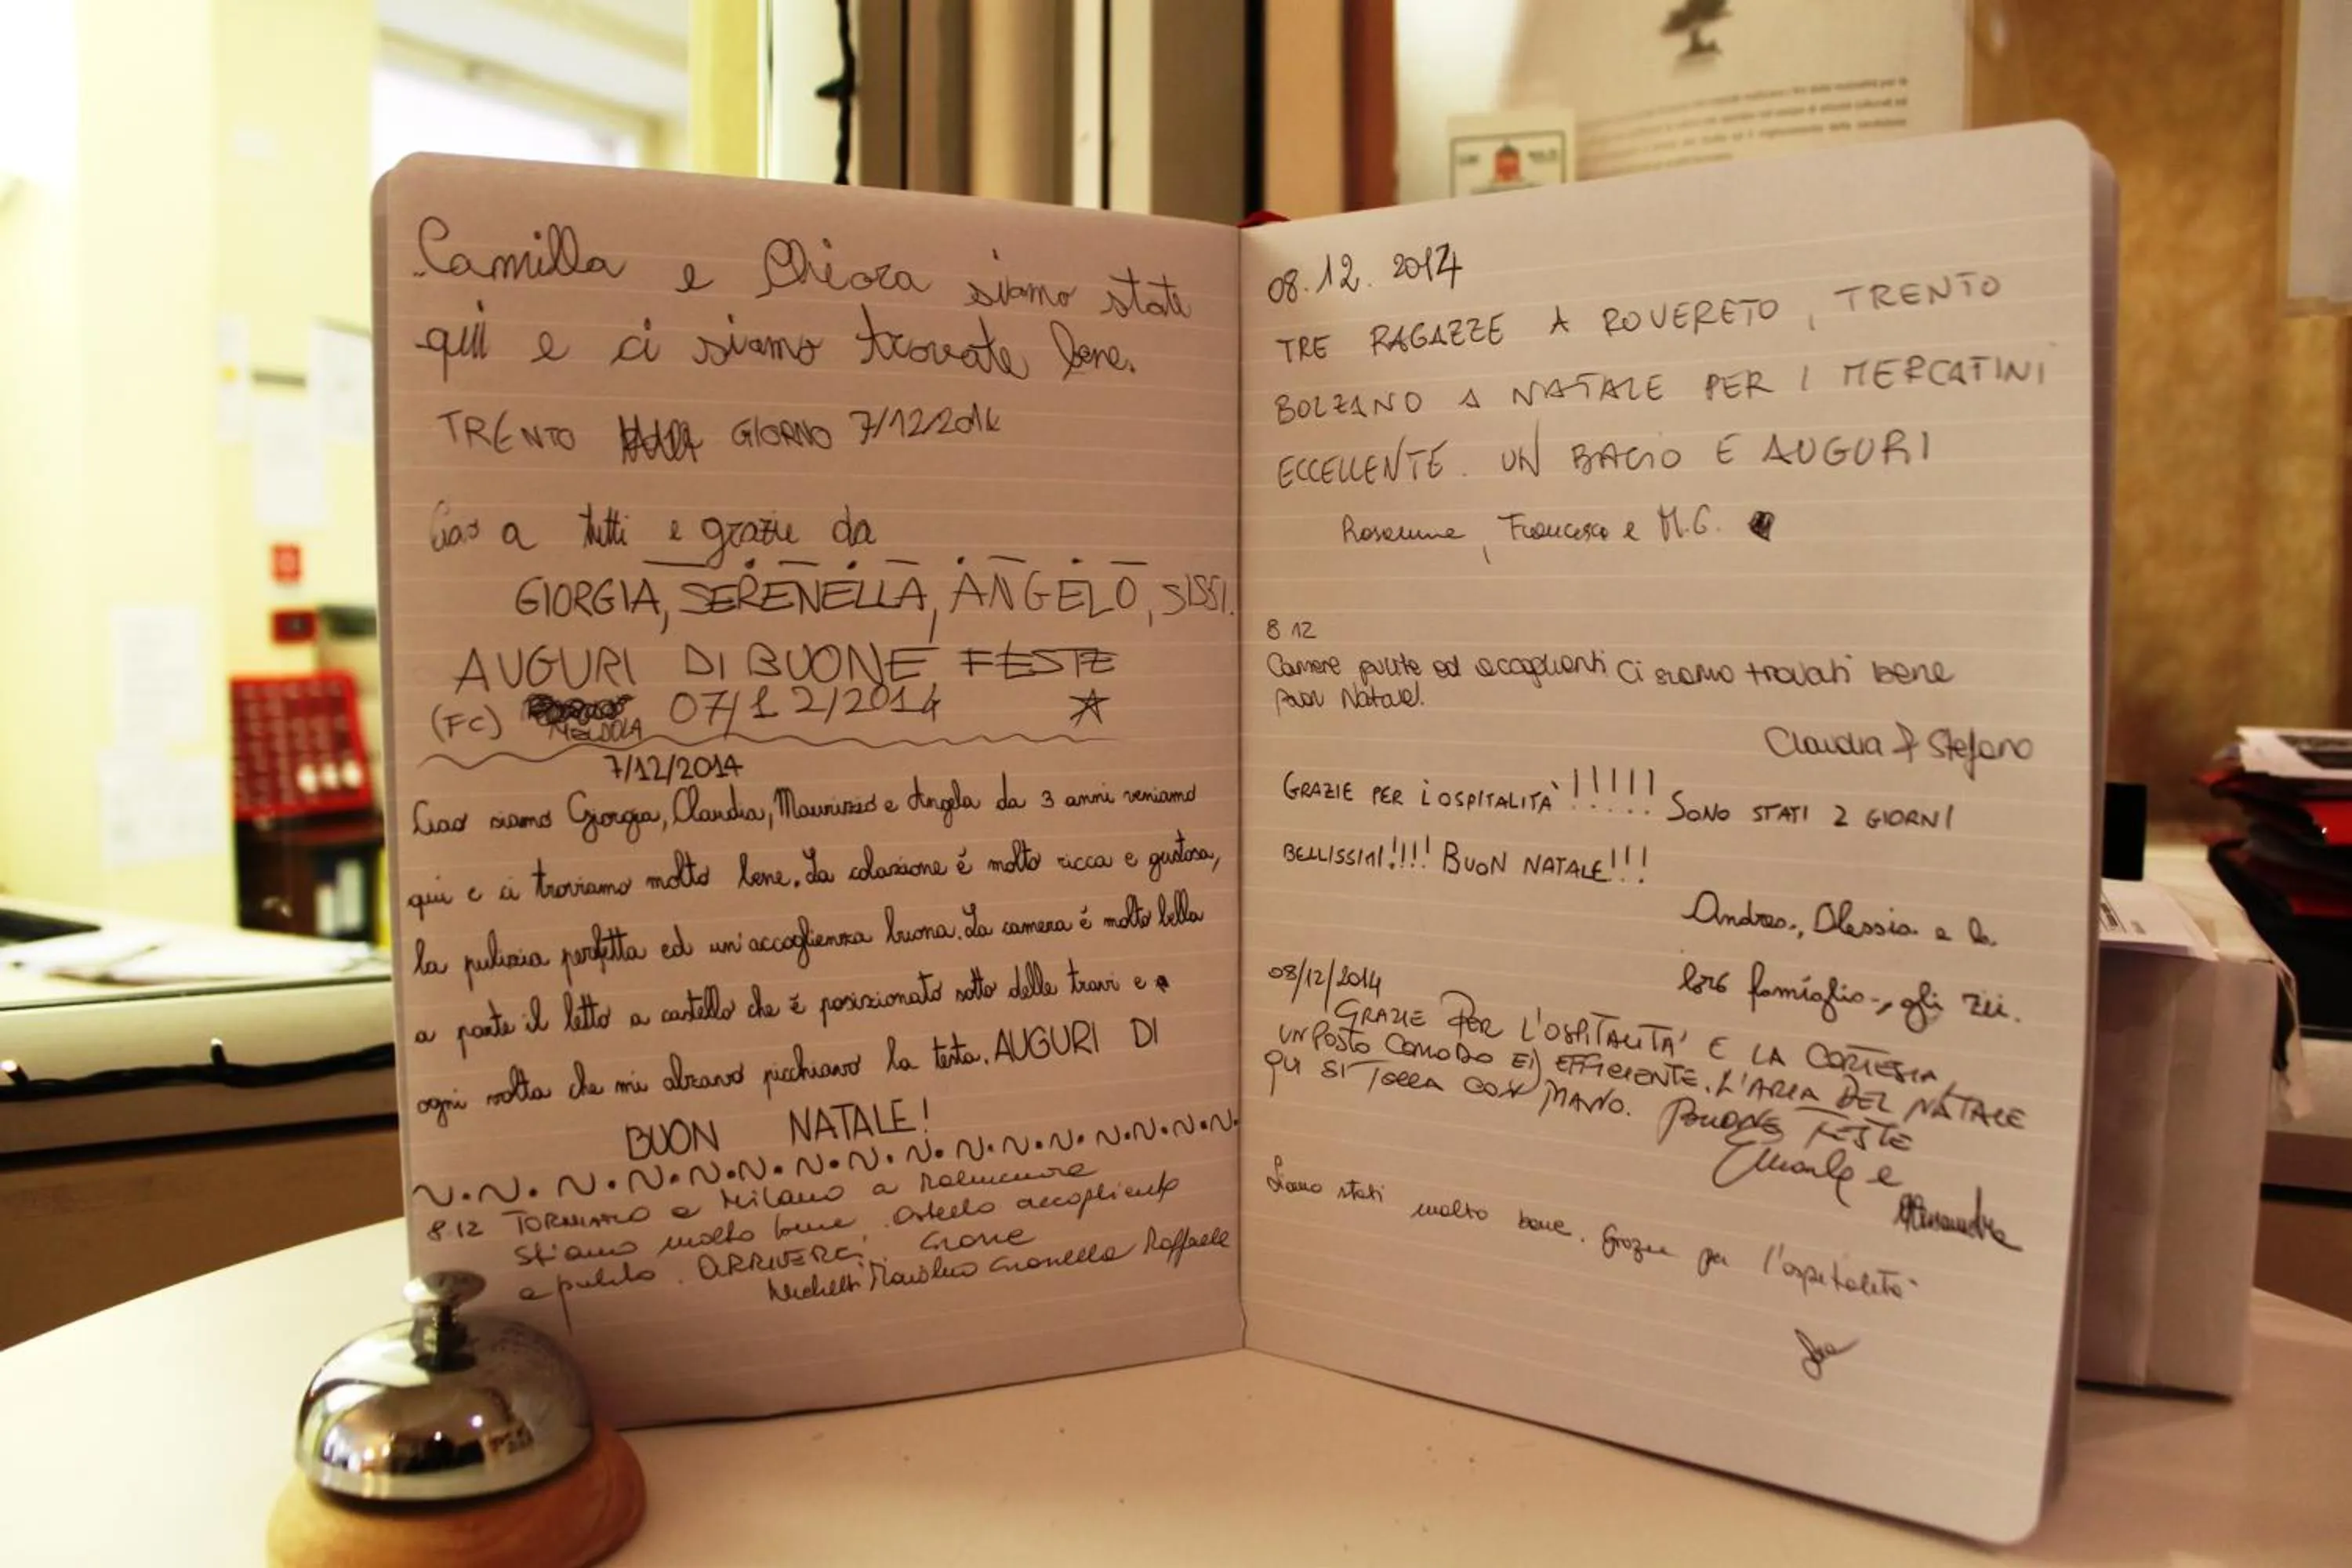 Camilla e Chiara siamo state
qui e ci siamo trovate bene.
TRENTO GIORNO 7/12/2014
Ciao a tutti e grazie da
GIORGIA, SERENELLA, ANGELO, SISSI.
AUGURI DI BUONE FESTE
(FC) MELDOLA 07/12/2014
7/12/2014
Ciao siamo Giorgia, Claudia, Maurizio e Angela da 3 anni veniamo
qui e ci troviamo molto bene. La colazione é molto ricca e gustosa,
la pulizia perfetta ed un'accoglienza buona. La camera é molto bella
a parte il letto a castello che é posizionato sotto delle travi e
ogni volta che mi alzavo picchiavo la testa. AUGURI DI
BUON NATALE!
8.12 TORNIAMO a Milano a
Stiamo molto bene. Ostello accogliente
e pulito. ARRIVERCI.
Raffaele
08.12.2014
TRE RAGAZZE A ROVERETO, TRENTO
BOLZANO A NATALE PER I MERCATINI
ECCELLENTE. UN BACIO E AUGURI
Rosanna, Francesca e M.G.
8.12
Camere pulite ed accoglienti ci siamo trovati bene
Buon Natale!
Claudia & Stefano
GRAZIE PER L'OSPITALITÀ!!!!! SONO STATI 2 GIORNI
BELLISSIMI!!!! BUON NATALE!!!
Andrea, Alessia e la
loro famiglia, gli zii.
08/12/2014
GRAZIE PER L'OSPITALITA' E LA CORTESIA,
UN POSTO COMODO ED EFFICIENTE. L'ARIA DEL NATALE
QUI SI TOCCA CON MANO. BUONE FESTE
e
Alessandra
Siamo stati molto bene. Grazie per l'ospitalità